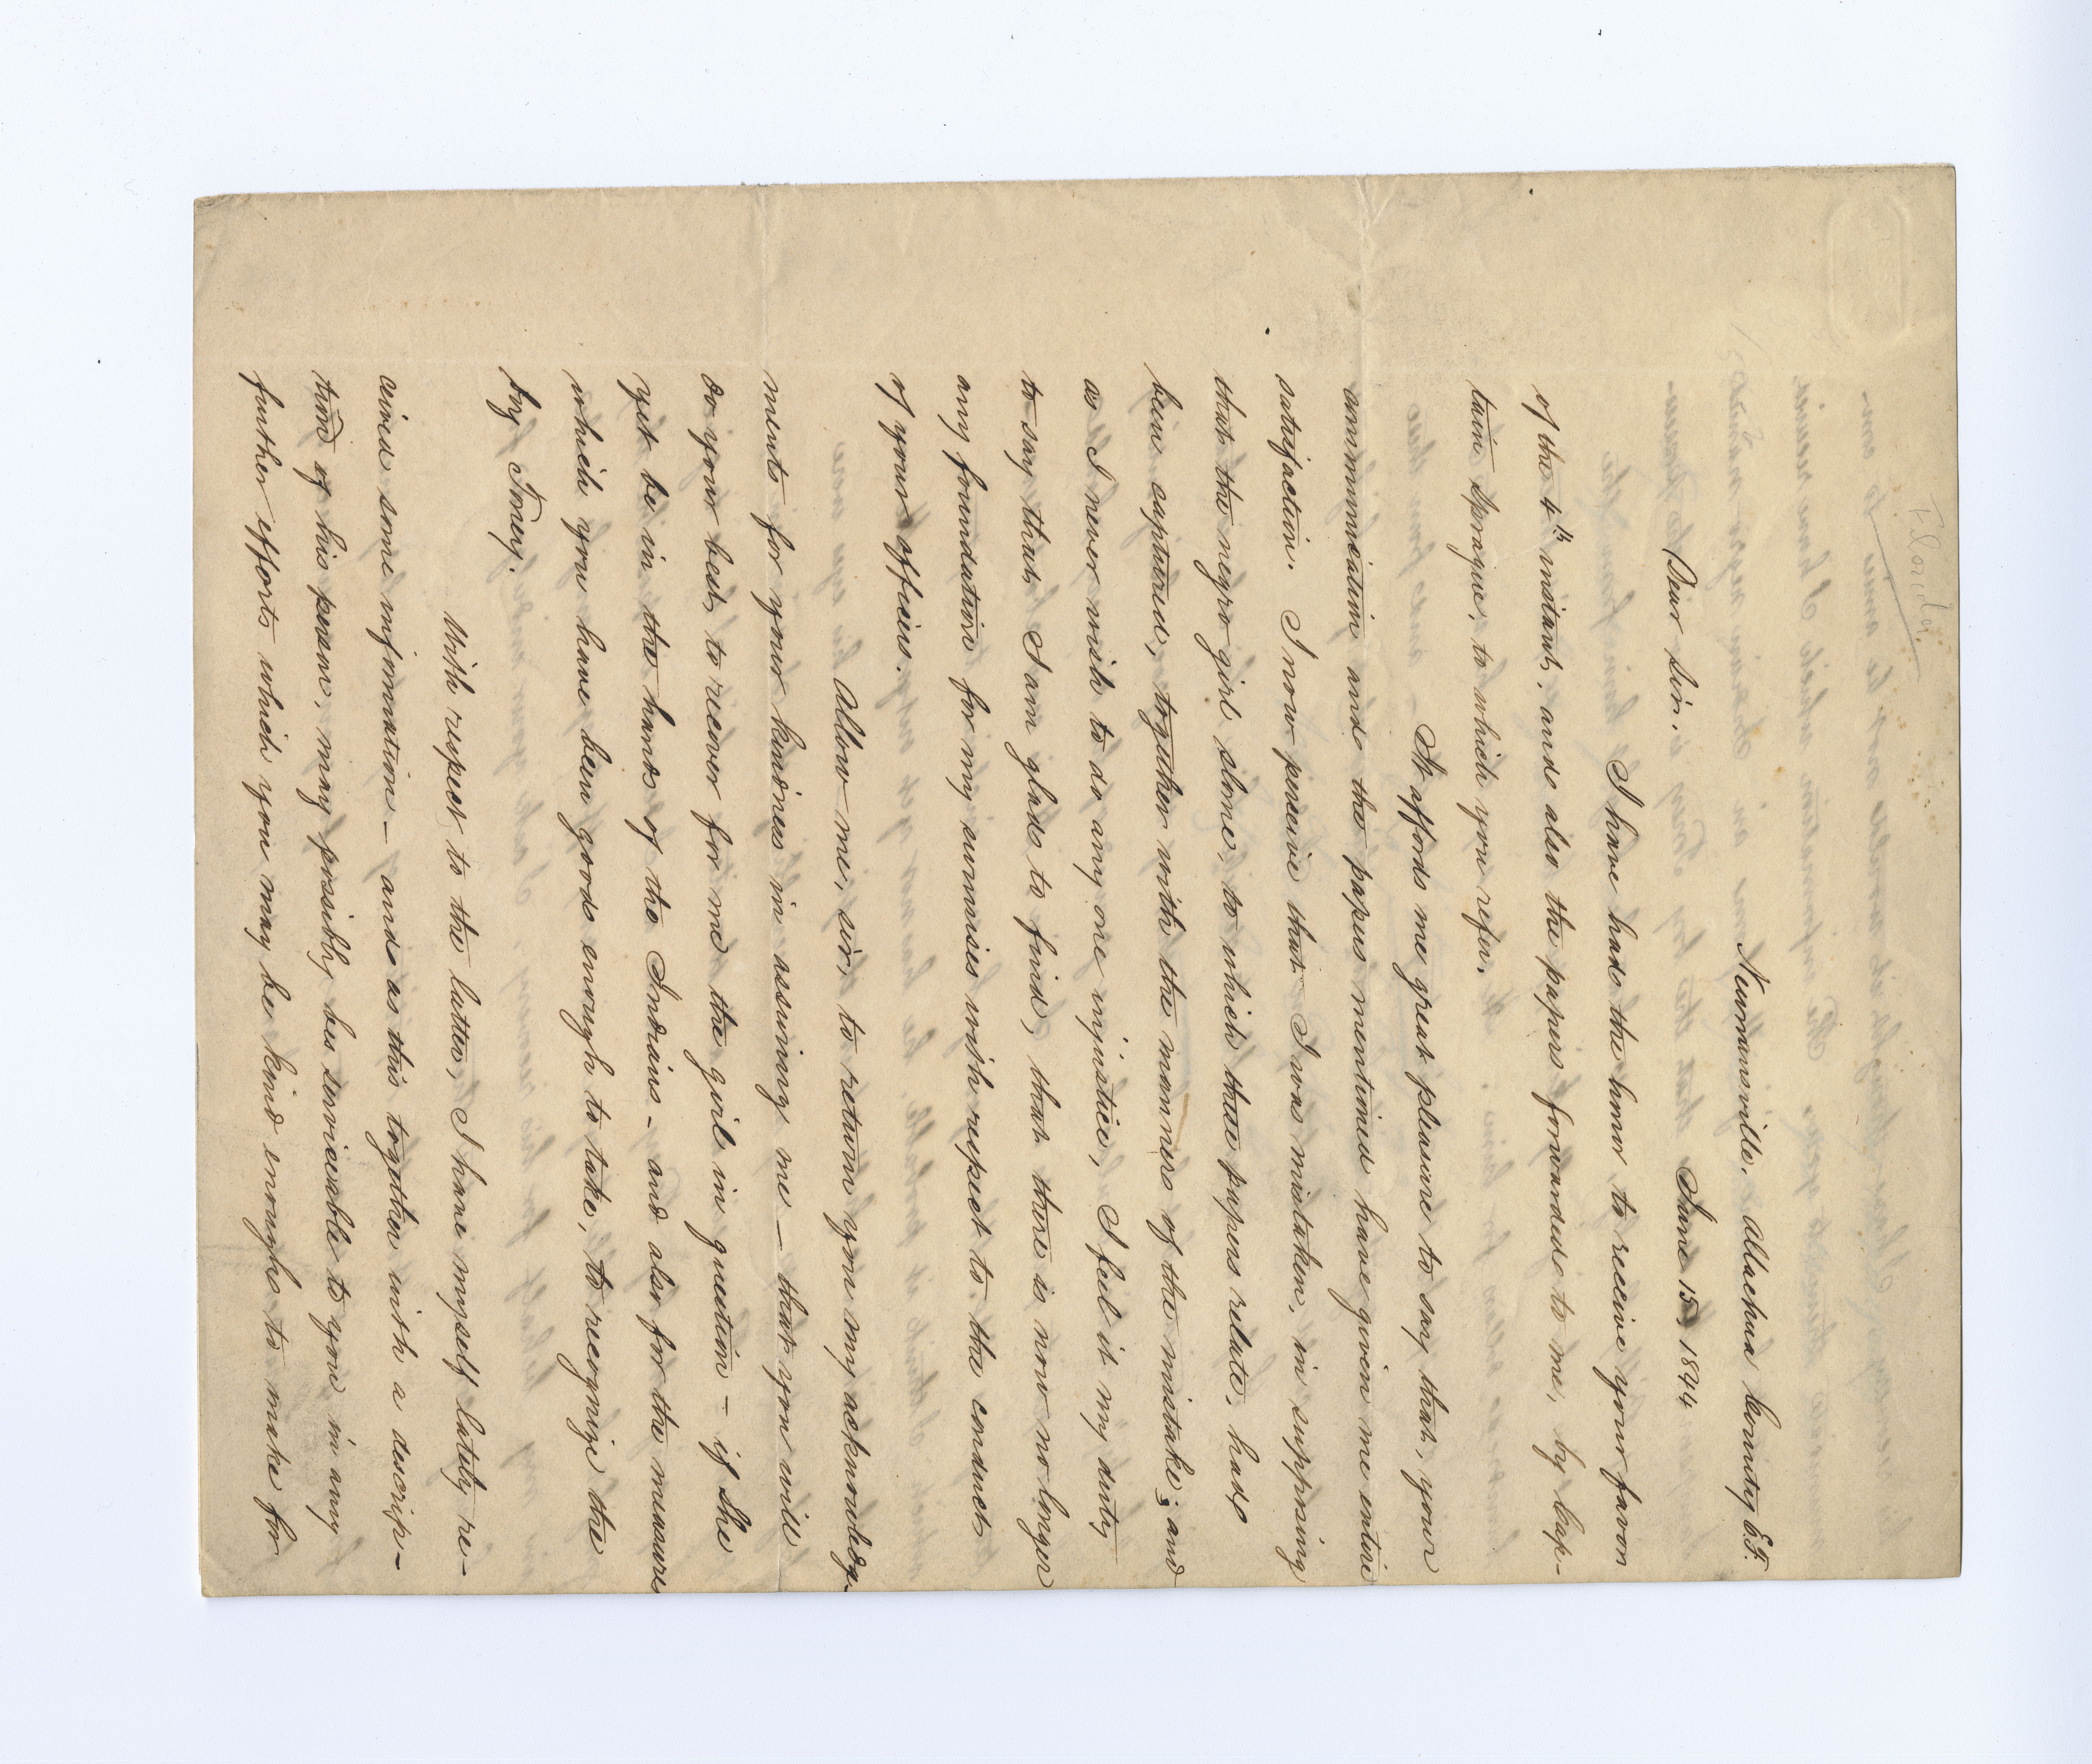 Florida
Newnansville. Allachua County E.F.
June 15, 1844
Dear Sir.
I have had the honor to receive your favor
of the 4th instant, and also the papers forwarded to me, by Cap-
tain Sprague, to which you refer.
It affords me great pleasure to say that, your
communication and the papers mentioned have given me entire
satisfaction. I now perceive that I was mistaken, in supposing
that the negro girl alone, to which these papers relate, had
been captured, together with the manners of the mistake; and
as I never wish to do any one injustice, I feel it my duty
to say that, I am glad to find, that there is now no longer
any foundation for my surmises with respect to the conduct
of your officers.
Allow me, sir, to return you my acknowledg-
ments for your kindness in assuring me - that you will
do your best, to recover for me the girl in question - if she
yet be in the hands of the Indians - and also for the measure
which you have been good enough to take, to recognize the
boy Toney.
With respect to the latter, I have myself lately re-
ceived some information - and as this together with a descrip-
tion of his person, may possibly be serviceable to you in any
further efforts which you may be kind enough to make for